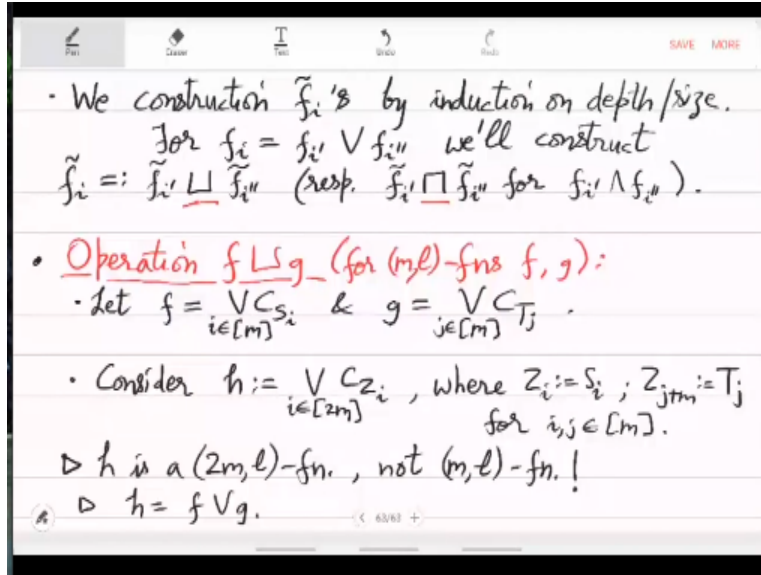 Pen Eraser Text Undo Redo SAVE MORE
· We construction f̃ᵢ's by induction on depth/size.
For fᵢ = fᵢ′ ∨ fᵢ″ we'll construct
f̃ᵢ =: f̃ᵢ′ ⊔ f̃ᵢ″ (resp. f̃ᵢ′ ⊓ f̃ᵢ″ for fᵢ′ ∧ fᵢ″).
• Operation f ⊔ g (for (m,l)-fns f, g):
· Let f = ⋁_{i∈[m]} C_{Sᵢ} & g = ⋁_{j∈[m]} C_{Tⱼ} .
· Consider h := ⋁_{i∈[2m]} C_{Zᵢ} , where Zᵢ := Sᵢ ; Z_{j+m} := Tⱼ
for i,j ∈ [m].
▷ h is a (2m,l)-fn. , not (m,l)-fn. !
▷ h = f ∨ g.
< 63/63 +